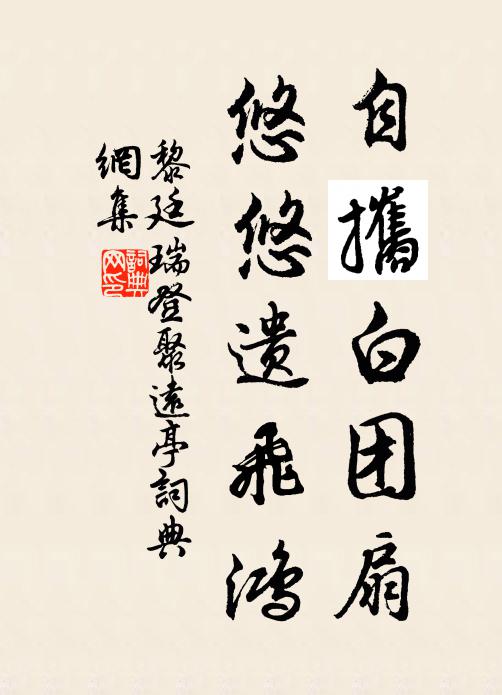 自攜白团扇
悠悠遗飛鸿
黎廷瑞登聚遠亭詞典
網集
詞典
网印